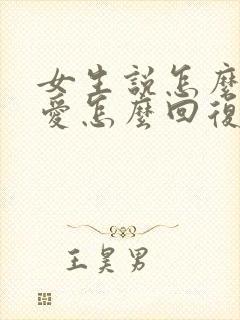 女生説怎麼
愛怎麼回復
王昊男